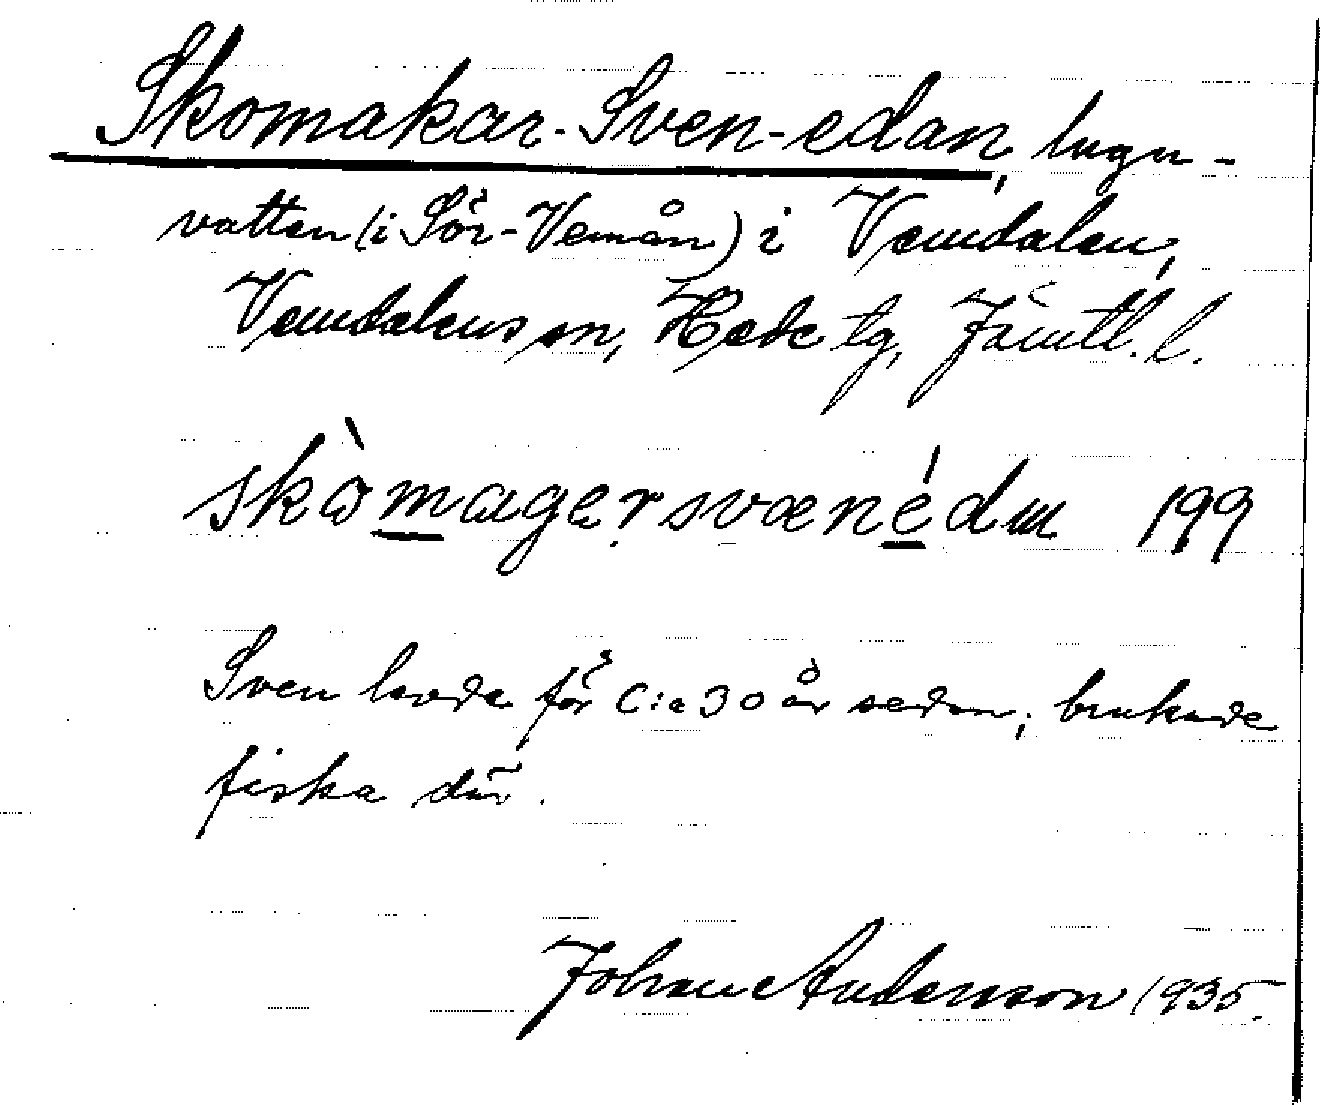 Skomakar-Sven-edan, lugn-
vatten (i Sör-Vemån) i Vemdalen,
Vemdalens sn, Hede tg, Jämtl. l.
skòmagersvænédn 199
Sven levde för c:a 30 år sedan; brukade
fiska där.
Johan Andersson 1935.